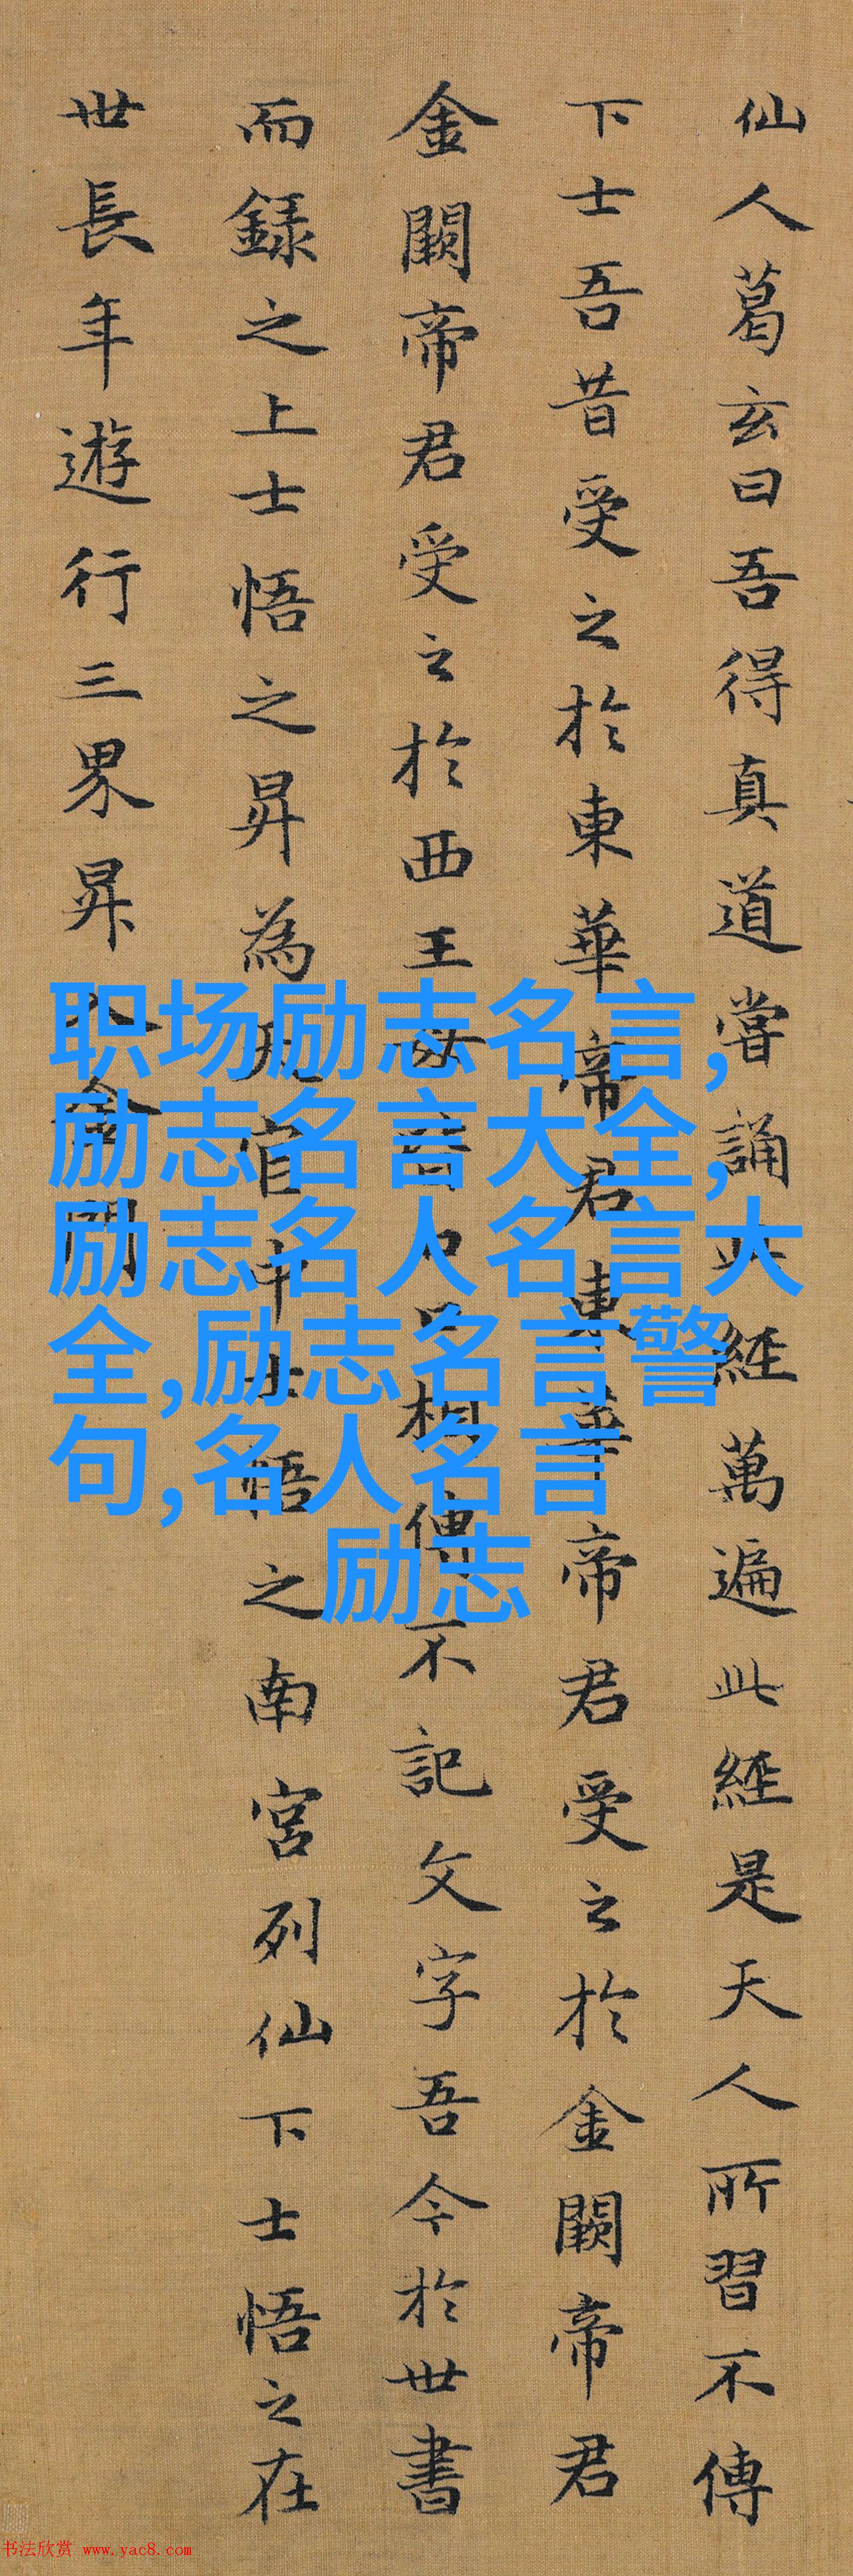 仙人葛玄曰吾得真道嘗誦此經萬遍此經是天人所習不傳
下士吾昔受之於東華帝君東華帝君受之於金闕帝君
金闕帝君受之於西王母皆口口相傳不記文字吾今於世書
而録之上士悟之昇為天官中士悟之南宮列仙下士悟之在
世長年遊行三界昇入金門
职场励志名言,
励志名言大全,
励志名人名言大
全,励志名言警
句,名人名言
励志
书法欣赏 www.yac8.com